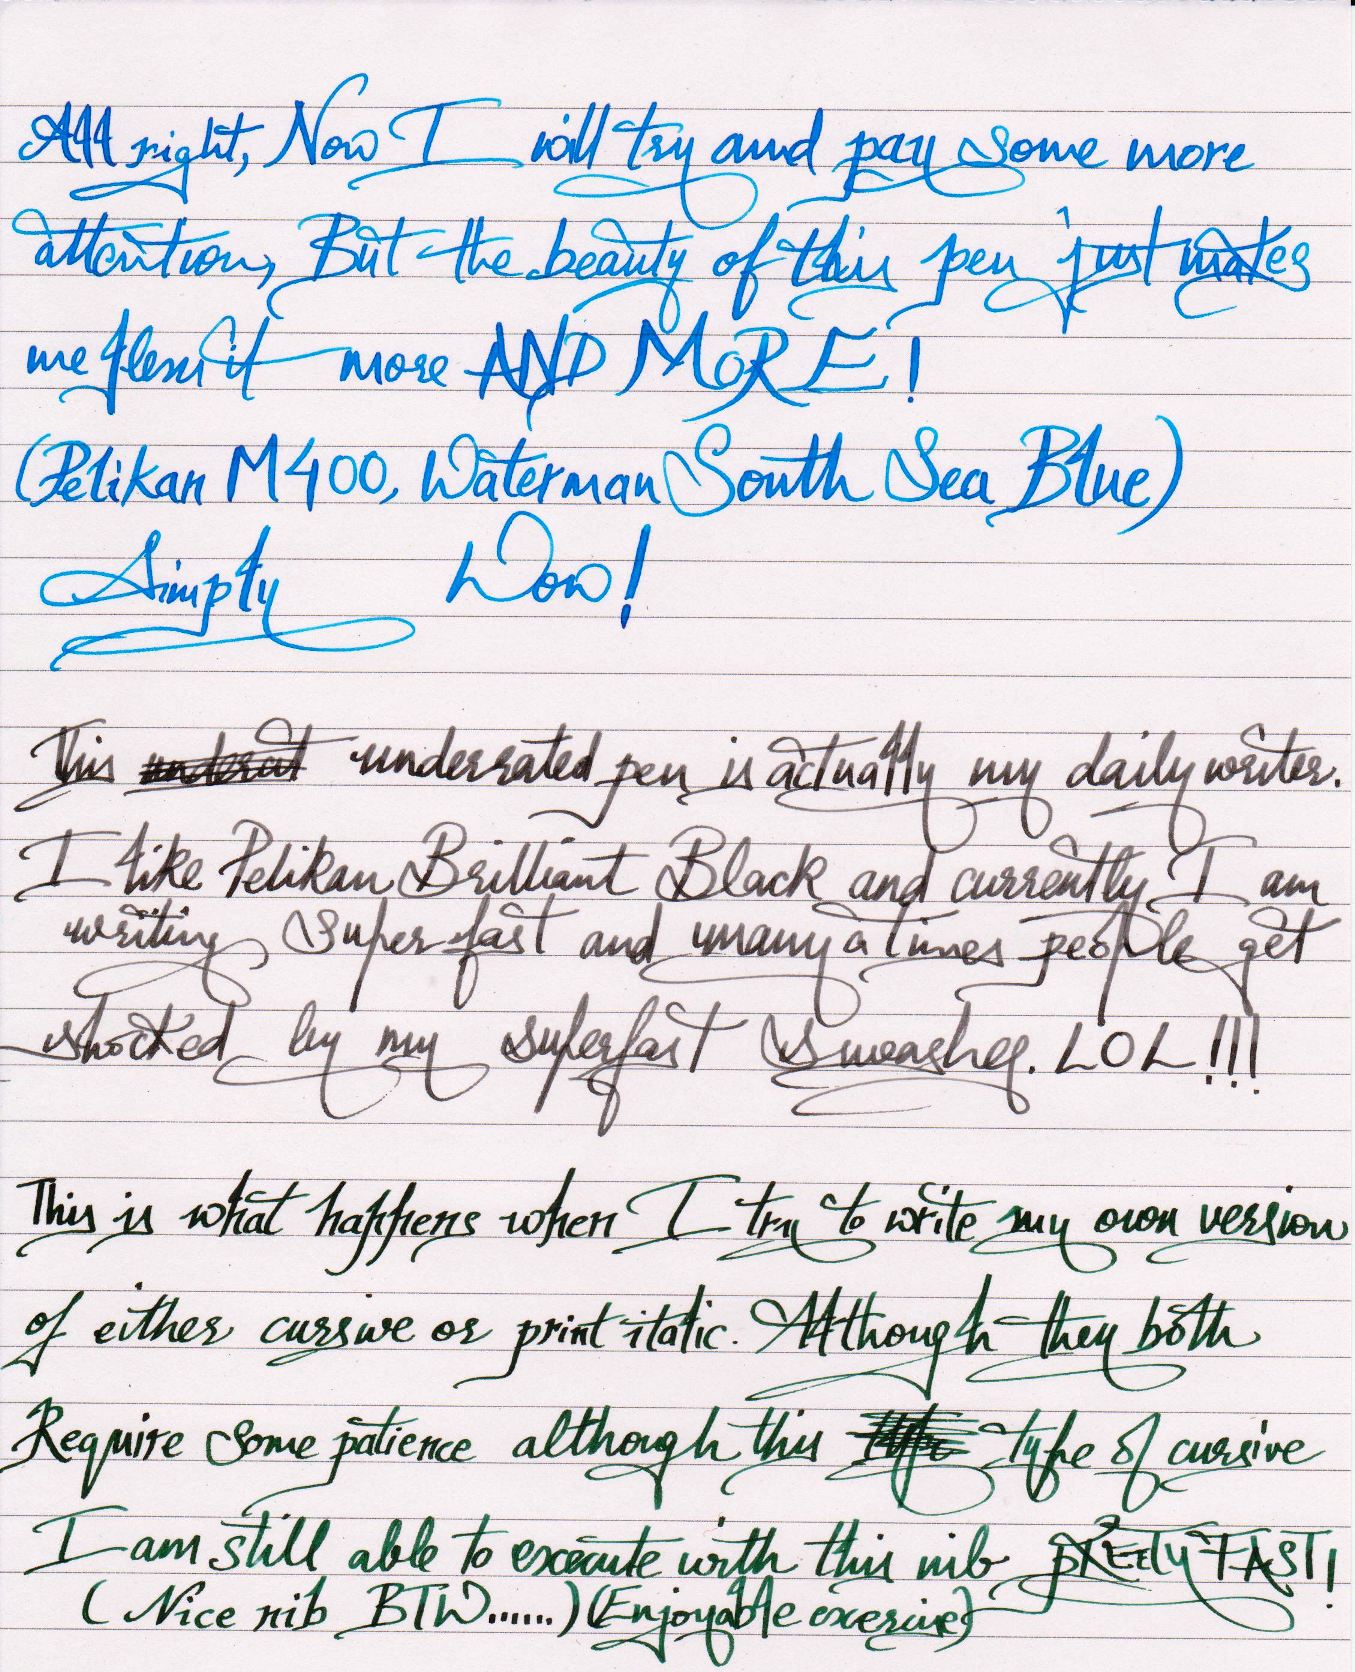 All right, Now I will try and pay some more
attention, But the beauty of this pen just makes
me flex it more AND MORE!
(Pelikan M400, Waterman South Sea Blue)
Simply Wow!
This underat underrated pen is actually my daily writer.
I like Pelikan Brilliant Black and currently I am
writing super fast and many a times people get
shocked by my superfast Swooshes. LOL!!!
This is what happens when I try to write my own version
of either cursive or print italic. Although they both
Require some patience although this type type of cursive
I am still able to execute with this nib PRETTY FAST!
(Nice nib BTW......) (Enjoyable exercise)